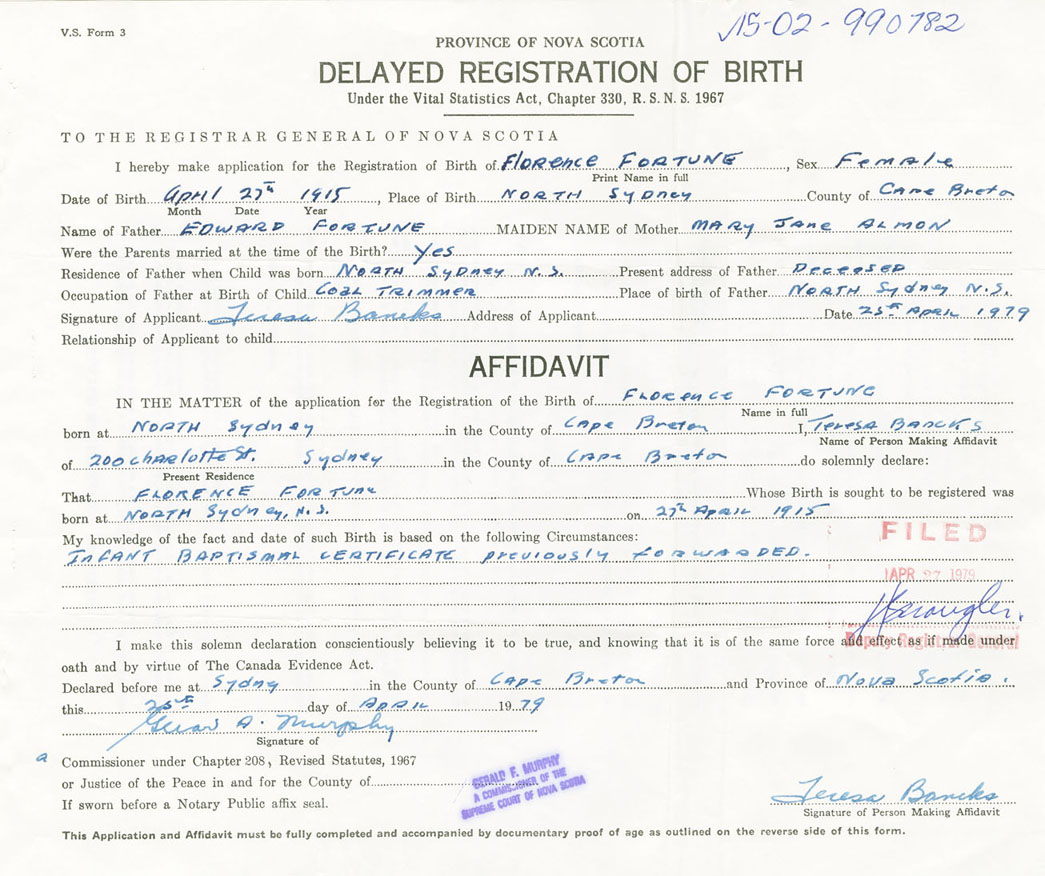 V.S. Form 3
15-02-990782
PROVINCE OF NOVA SCOTIA
DELAYED REGISTRATION OF BIRTH
Under the Vital Statistics Act, Chapter 330, R. S. N. S. 1967
TO THE REGISTRAR GENERAL OF NOVA SCOTIA
I hereby make application for the Registration of Birth of Florence FORTUNE, Sex Female
Print Name in full
Date of Birth April 27th 1915, Place of Birth NORTH Sydney County of Cape Breton
Month Date Year
Name of Father EDWARD FORTUNE MAIDEN NAME of Mother MARY JANE ALMON
Were the Parents married at the time of the Birth? Yes
Residence of Father when Child was born NORTH Sydney N.S. Present address of Father Deceased
Occupation of Father at Birth of Child COAL TRIMMER Place of birth of Father NORTH Sydney N.S.
Signature of Applicant Teresa Bancks Address of Applicant Date 25th April 1979
Relationship of Applicant to child
AFFIDAVIT
IN THE MATTER of the application for the Registration of the Birth of Florence FORTUNE
Name in full
born at NORTH Sydney in the County of Cape Breton I, Teresa BANCKS
Name of Person Making Affidavit
of 200 charlotte St. Sydney in the County of Cape Breton do solemnly declare:
Present Residence
That FLORENCE FORTUNE Whose Birth is sought to be registered was
born at NORTH Sydney, N.S. on 27th April 1915
My knowledge of the fact and date of such Birth is based on the following Circumstances:
INFANT BAPTISMAL CERTIFICATE previously forwarded.
FILED
APR 27 1979
I make this solemn declaration conscientiously believing it to be true, and knowing that it is of the same force and effect as if made under
Deputy Registrar General
oath and by virtue of The Canada Evidence Act.
Declared before me at Sydney in the County of Cape Breton and Province of Nova Scotia.
this 25th day of April 1979
A. Murphy
Signature of
a Commissioner under Chapter 208, Revised Statutes, 1967
or Justice of the Peace in and for the County of
If sworn before a Notary Public affix seal.
GERALD F. MURPHY
A COMMISSIONER OF THE
SUPREME COURT OF NOVA SCOTIA
Teresa Bancks
Signature of Person Making Affidavit
This Application and Affidavit must be fully completed and accompanied by documentary proof of age as outlined on the reverse side of this form.